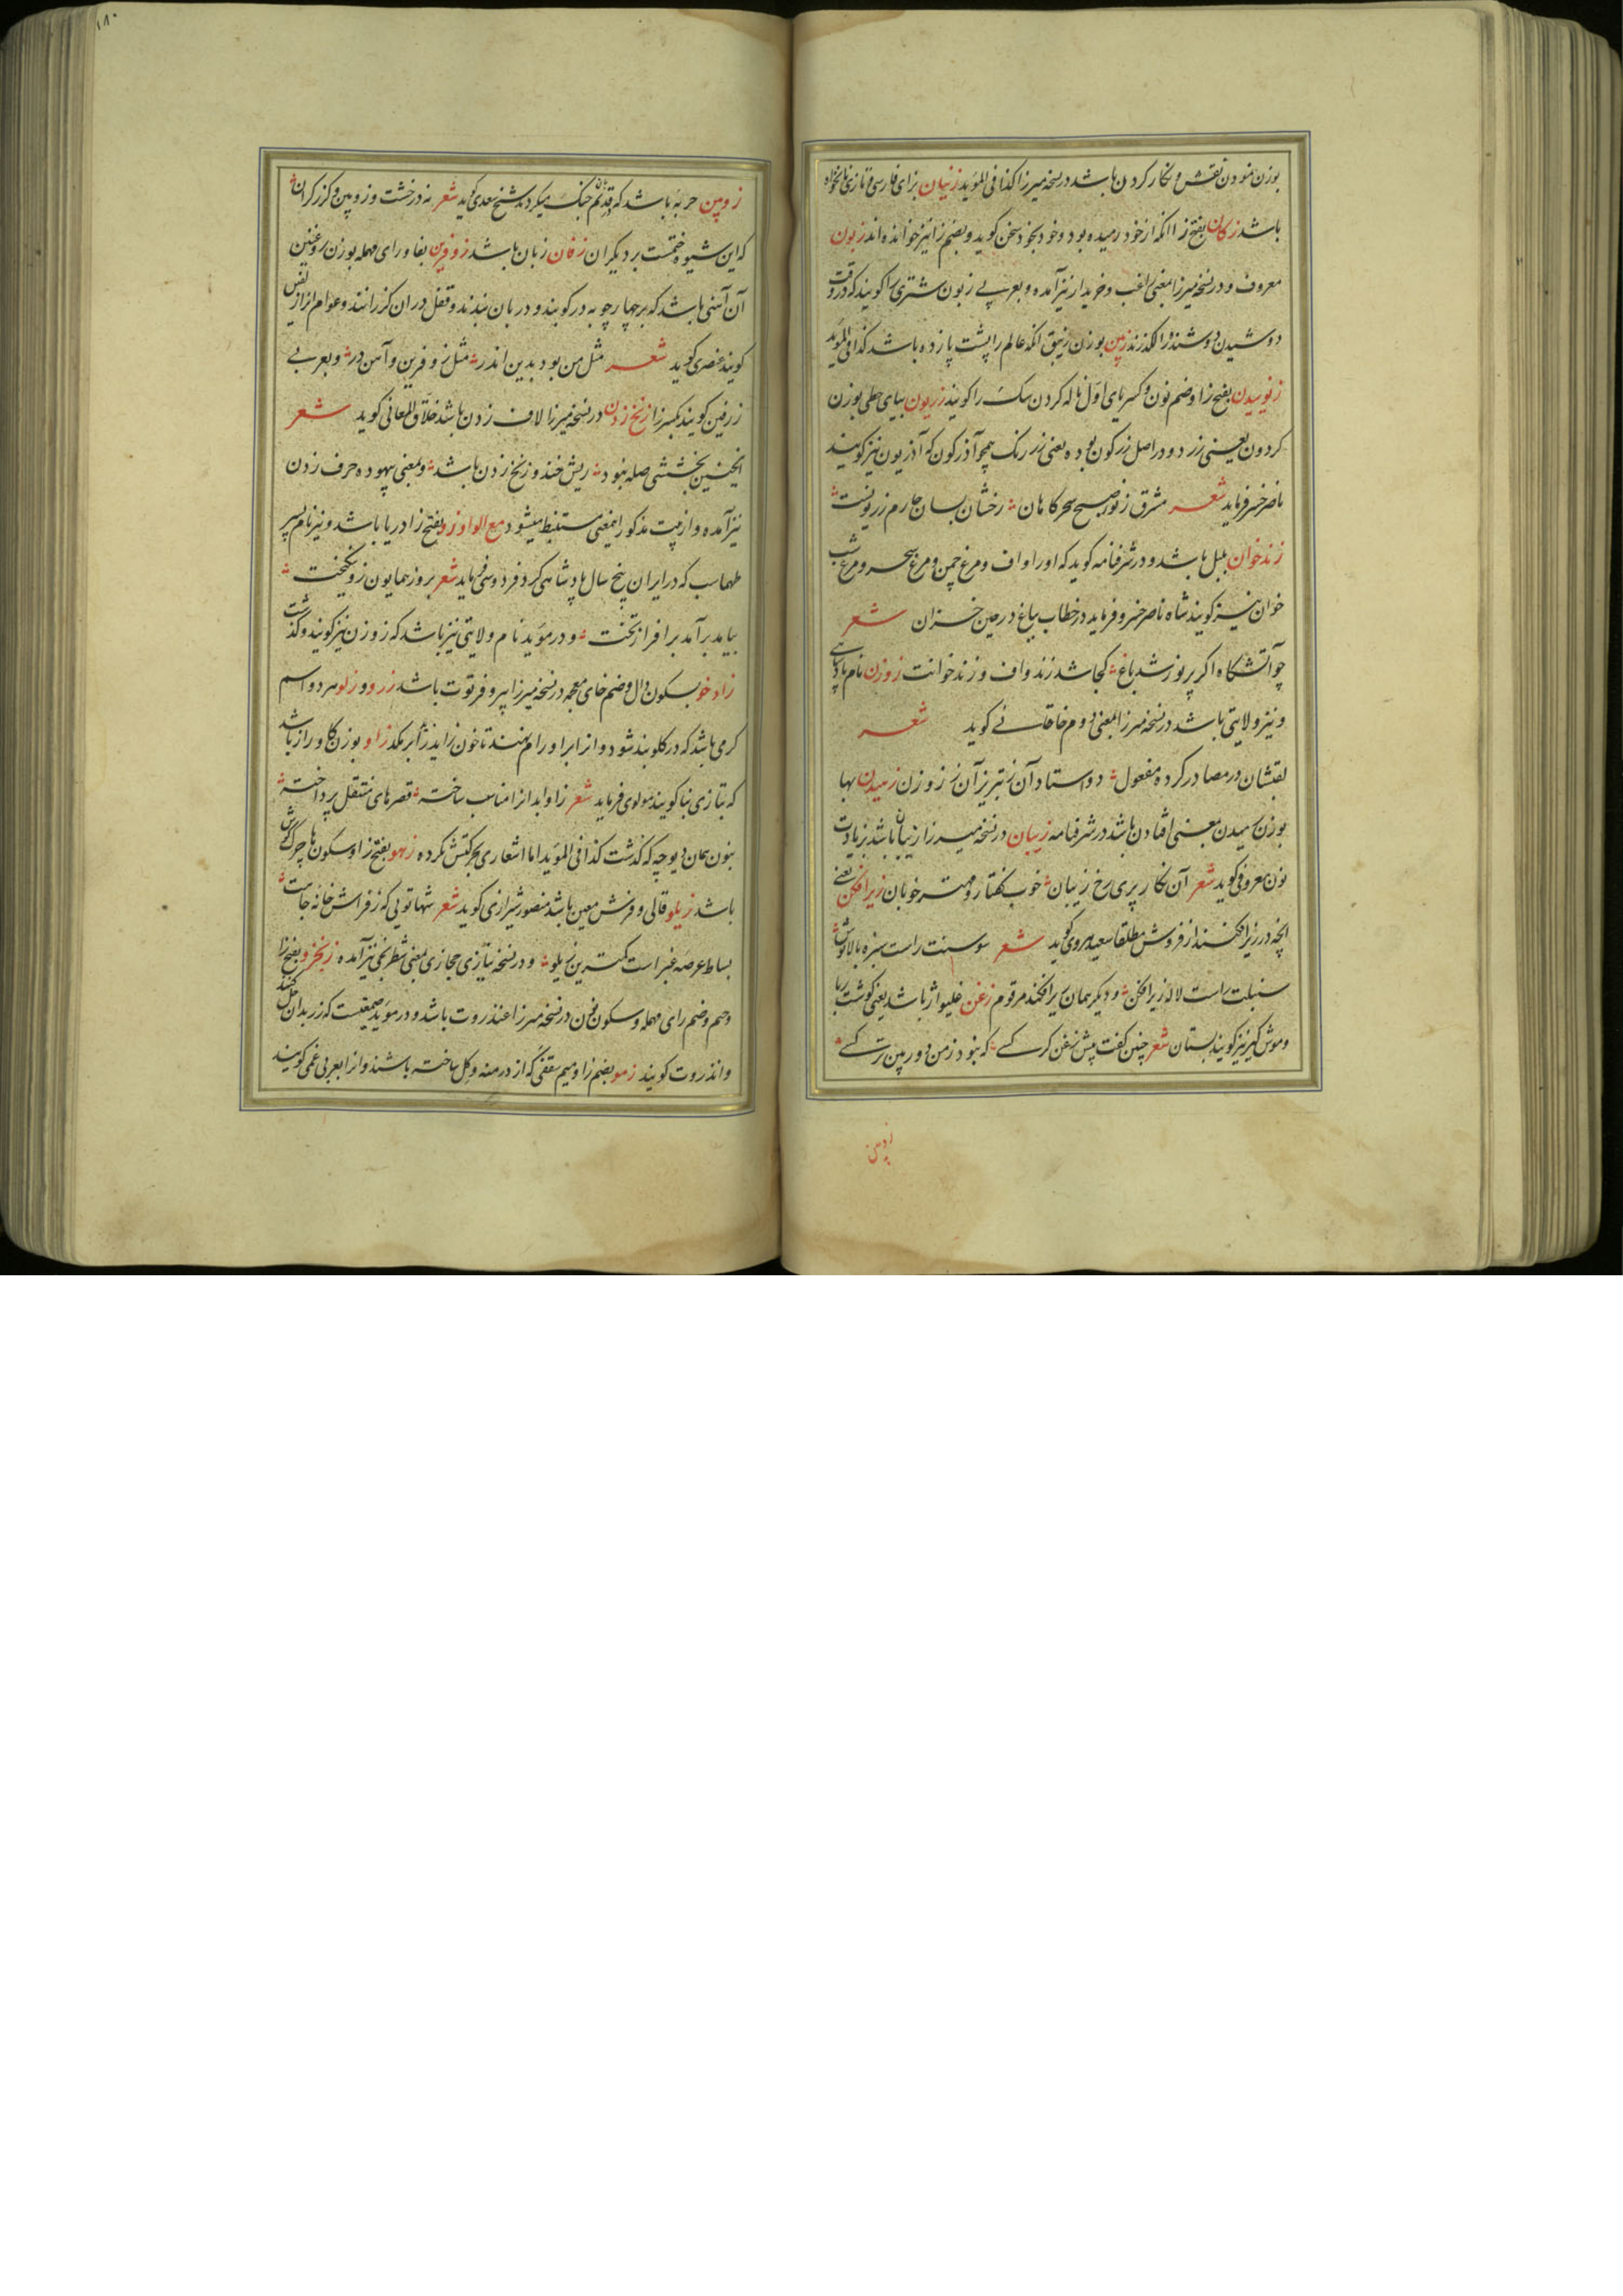 بوزن نمودن نقش و نکار کردن باشد در نسخه میرزا کذا فی المؤید زنیان بزای فارسی و تازی نانخواه
باشد زکان بفتح زا انکه از خود رمیده بود و خود بخود سخن کوید و بضم زا نیز خوانده اند زبون
معروف و در نسخه میرزا بمعنی لغب و خریدار نیز آمده و بعربی زبون مشتری را کویند که در وقت
دوشیدن دوشنده را لکد زند زپن بوزن زنبق انکه عالم را پشت پا زده باشد کذا فی المؤید
زنوییدن بفتح زا و ضم نون و کسر یای اول ناله کردن سک را کویند زریون بیای حطی بوزن
کردون یعنی زرد و در اصل زرکون بوده یعنی زر رنک همچو آذرکون که آذریون نیز کویند
ناصر خسرو فرماید شعر مشرق ز نور صبح سحرکاهان رخشان بسان طارم زریونست
زندخوان بلبل باشد و در شرفنامه کوید که او را واف و مرغ چمن و مرغ سحر و مرغ شب
خوان نیز کویند شاه ناصر خسرو فرماید در خطاب بباغ در حین خزان شعر
چو آتشکاه اکر پر نور شد باغ کجا شد زند واف و زند خوانت زوزن نام پادشاهی
و نیز ولایتی باشد در نسخه میرزا بمعنی دوم خاقانی کوید شعر
لقبشان در مصادر کرده مفعول دو استاد آن ز تبریز آن ز زوزن زمیدن بها
بوزن رسیدن معنی افتادن باشد در شرفنامه زیبان در نسخه میرزا زیبا باشد بزیادت
نون معروفی کوید شعر آن نکار پری رخ زیبان خوب کفتار و مهتر خوبان زیرافکن یعنی
انچه در زیر افکنند از فروش مطلقا سعید هروی کوید شعر سوسنت راست سبزه بالاپوش
سنبلت راست لاله زیرافکن و دیکر همان زیرافکند مرقوم زغن غلیواژ باشد یعنی کوشت ربا
و موش کیر نیز کویند بستان شعر چنین کفت پیش زغن کرکسی که نبود ز من دوربین تر کسی
زوپین
۱۸۰
زوپین حربه باشد که در قدیم بآن جنک میکردند شیخ سعدی کوید شعر نه در خشت و زوپین و کرز کران
که این شیوه ختمست بر دیکران زفان زبان باشد زوفرین بفا و رای مهمله بوزن روغنین
آن آهنی باشد که بر چهارچوبه در کوبند و در بان ببندند و قفل در ان کذرانند و عوام انرا زلفین
کویند عنصری کوید شعر مثل من بود بدین اندر مثل زوفرین و آهن در و بعربی
زرفین کویند بکسر زا زنخ زدن در نسخه میرزا لاف زدن باشد خلاق المعانی کوید شعر
اینچنین بخششی صله نبود ریش خند و زنخ زدن باشد و بمعنی بیهوده حرف زدن
نیز آمده و از بیت مذکور اینمعنی مستنبط میشود مع الواو زو بفتح زا دریا باشد و نیز نام پسر
طهماسب که در ایران پنج سال پادشاهی کرد فردوسی فرماید شعر بروز همایون زو نیکبخت
بیامد برآمد بر افراز تخت و در مؤید نام ولایتی نیز باشد که زوزن نیز کویند و کذشت
زادخو بسکون دال و ضم خای معجمه در نسخه میرزا پیر و فرتوت باشد زرو و زلو هر دو اسم
کرمی باشد که در کلو بند شود و انرا بر اورام نهند تا خون زاید را بمکد زاو بوزن کاو راز باشد
که بتازی بنا کویند مولوی فرماید شعر زاو ابد انرا مناسب ساخته قصرهای منتقل پرداخته
بنون همان دیوچه که کذشت کذا فی المؤید اما اشعاری بحرکتش نکرده زهو بفتح زا و سکون ها چرک کوش
باشد زیلو قالی و فرش معین باشد منصور شیرازی کوید شعر شها تویی که ز فراش خانه جاهت
بساط عرصه غبراست کمترین زیلو و در نسخه نیازی حجازی بمعنی شطرنجی نیز آمده زنجرو بفتح زا
و جیم و ضم رای مهمله و سکون نون در نسخه میرزا عنذروت باشد و در مؤید صمغیست که زر بدان حل کنند
و انذروت کویند زمو بضم زا و میم سقفی که از درمنه و کل ساخته باشند و انرا بعربی غمی کویند